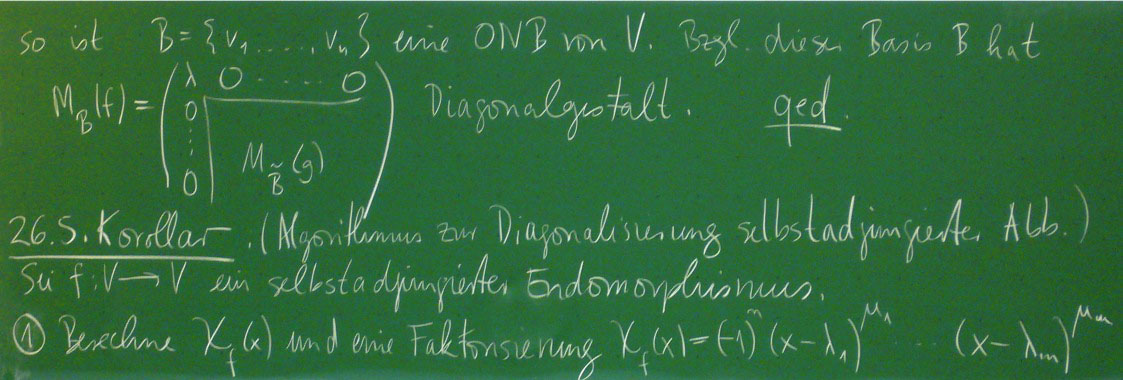 so ist B = {v₁ ....., vₙ} eine ONB von V. Bzgl. dieser Basis B hat
M_B(f) = ( λ 0 ······ 0 ; 0 ⋮ 0 M_B̃(g) ) Diagonalgestalt. qed.
26.5. Korollar. (Algorithmus zur Diagonalisierung selbstadjungierter Abb.)
Sei f: V → V ein selbstadjungierter Endomorphismus.
① Berechne χ_f(x) und eine Faktorisierung χ_f(x) = (-1)^n (x-λ₁)^μ₁ ····· (x-λ_m)^μ_m